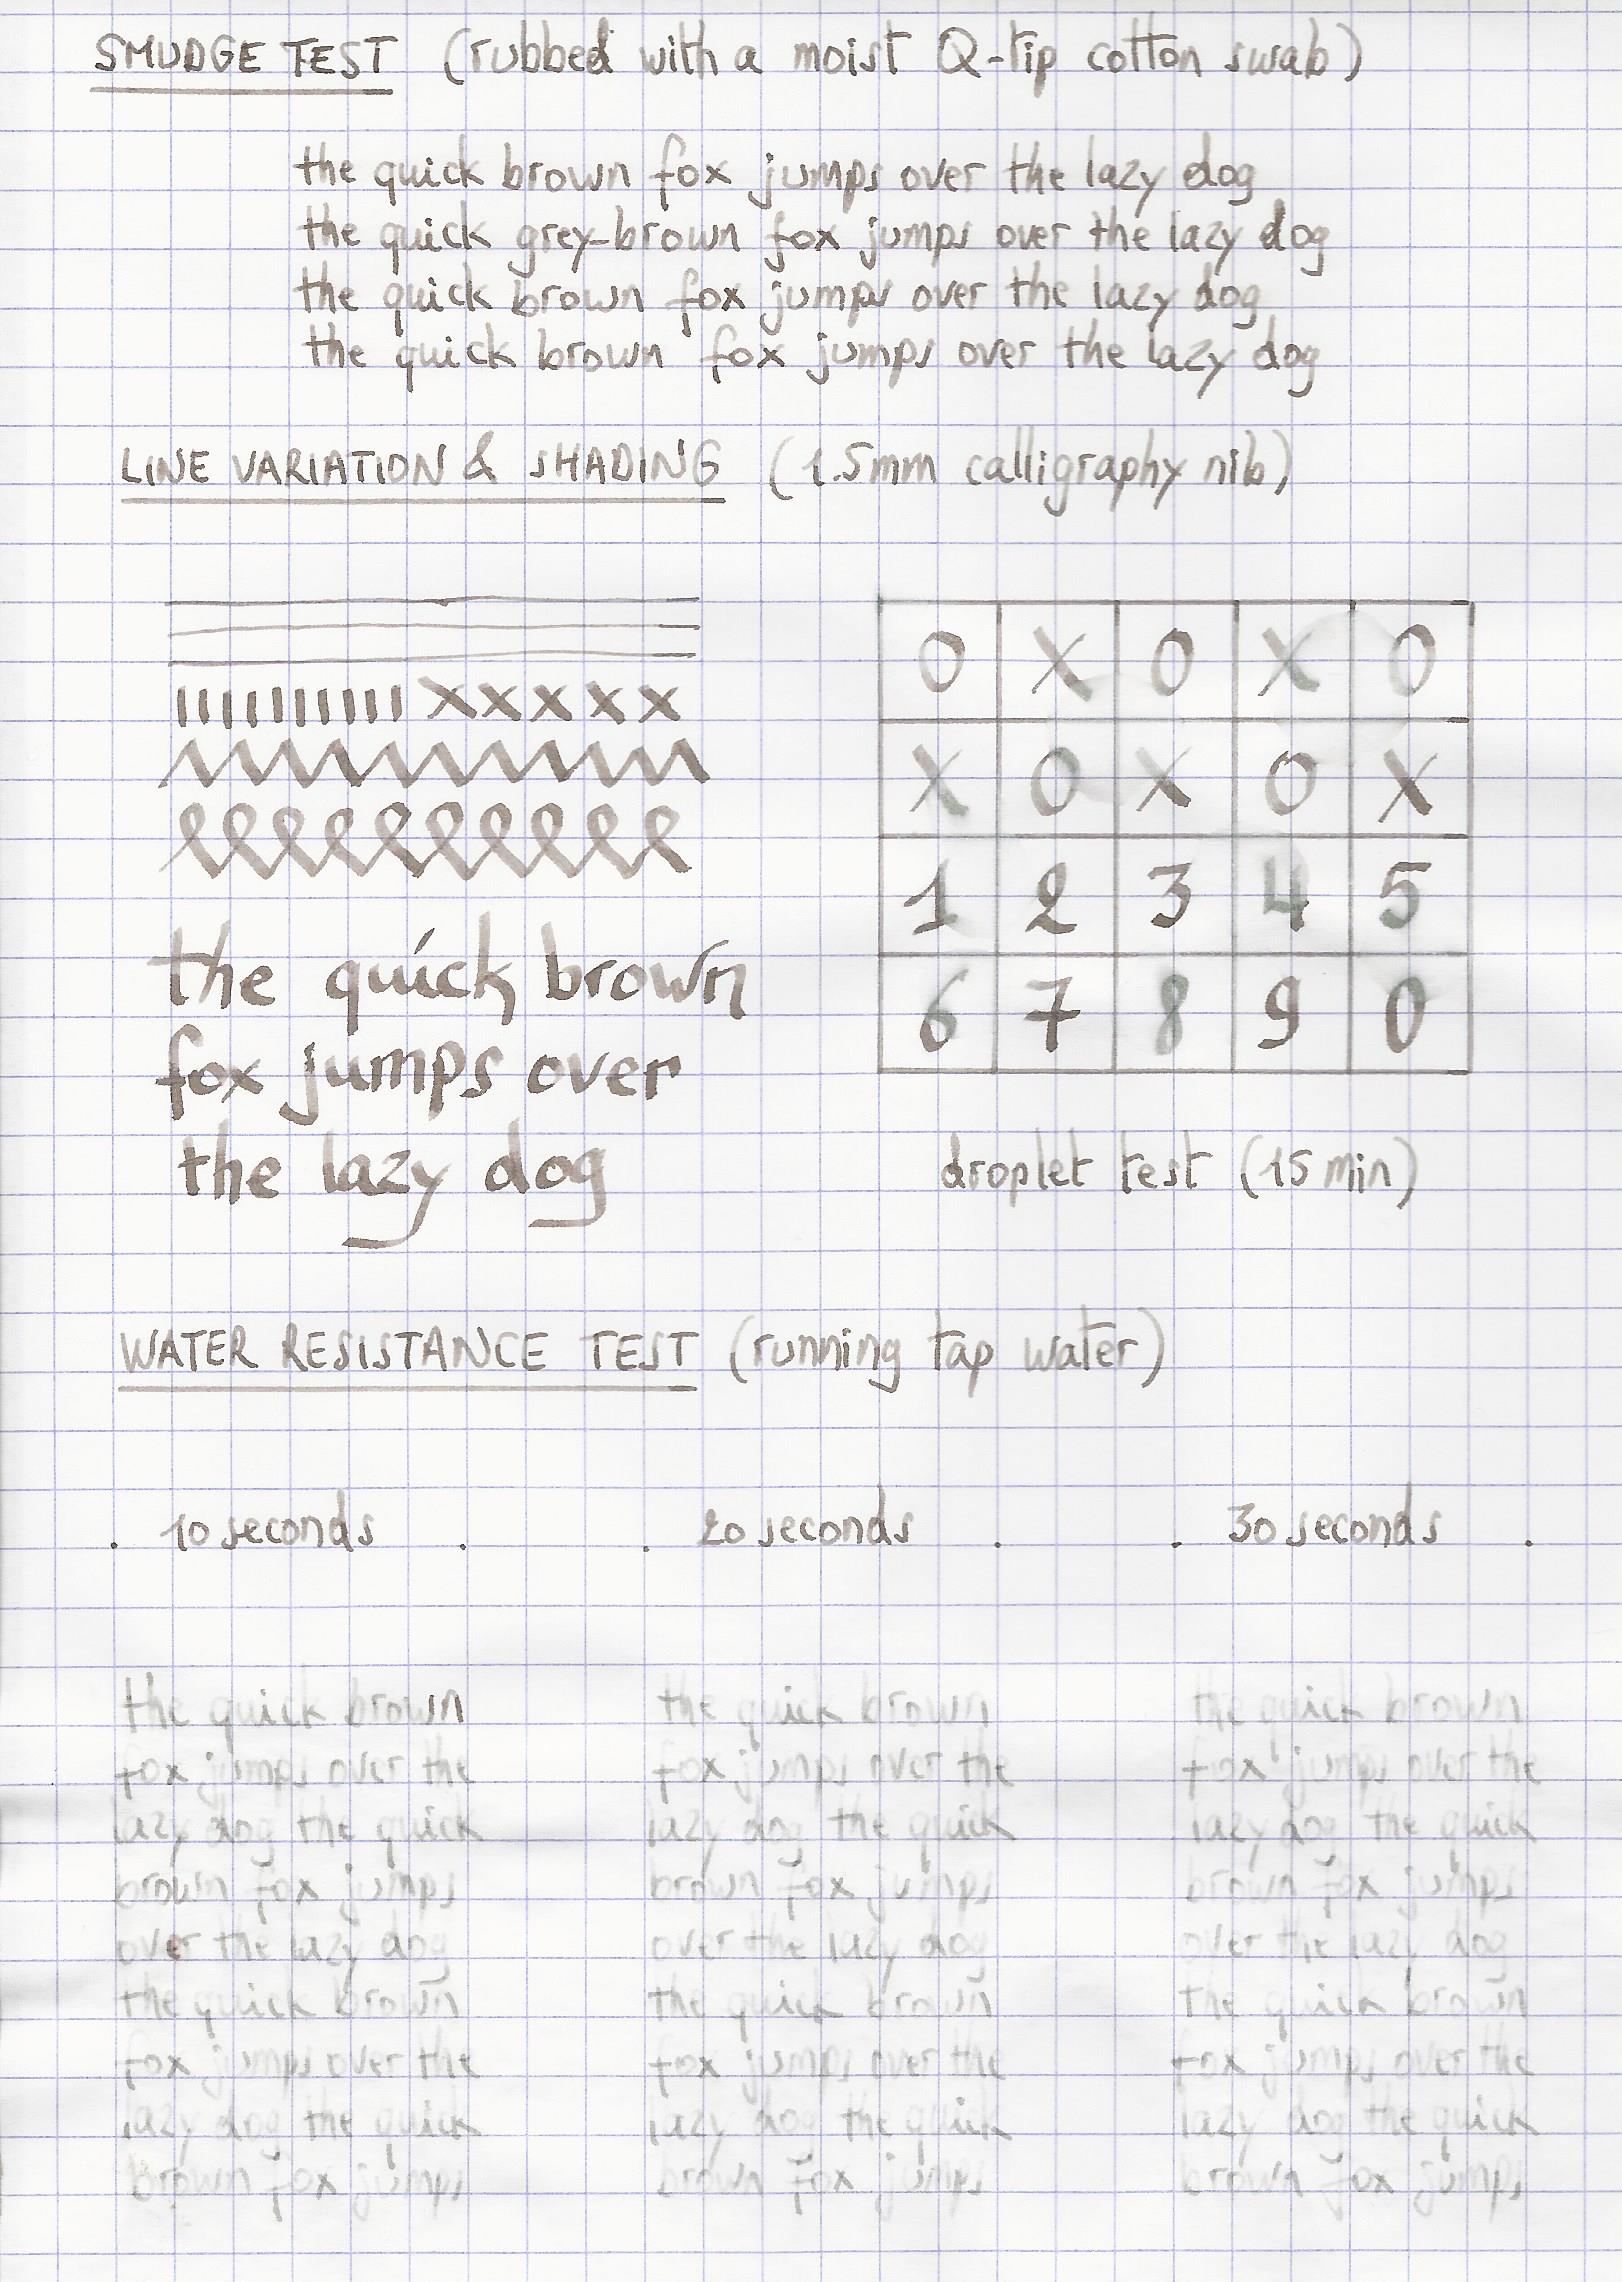 SMUDGE TEST (rubbed with a moist Q-tip cotton swab)
the quick brown fox jumps over the lazy dog
the quick grey-brown fox jumps over the lazy dog
the quick brown fox jumps over the lazy dog
the quick brown fox jumps over the lazy dog
LINE VARIATION & SHADING (1.5mm calligraphy nib)
||||||||||| xxxxx
the quick brown
fox jumps over
the lazy dog
O X O X O
X O X O X
1 2 3 4 5
6 7 8 9 0
droplet test (15 min)
WATER RESISTANCE TEST (running tap water)
. 10 seconds . . 20 seconds . . 30 seconds .
the quick brown
fox jumps over the
lazy dog the quick
brown fox jumps
over the lazy dog
the quick brown
fox jumps over the
lazy dog the quick
brown fox jumps
the quick brown
fox jumps over the
lazy dog the quick
brown fox jumps
over the lazy dog
the quick brown
fox jumps over the
lazy dog the quick
brown fox jumps
the quick brown
fox jumps over the
lazy dog the quick
brown fox jumps
over the lazy dog
the quick brown
fox jumps over the
lazy dog the quick
brown fox jumps